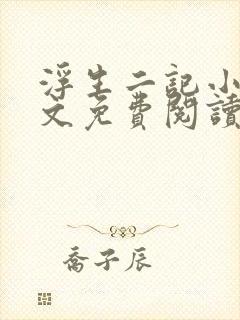 浮生二記小
文免費閱讀
喬子辰